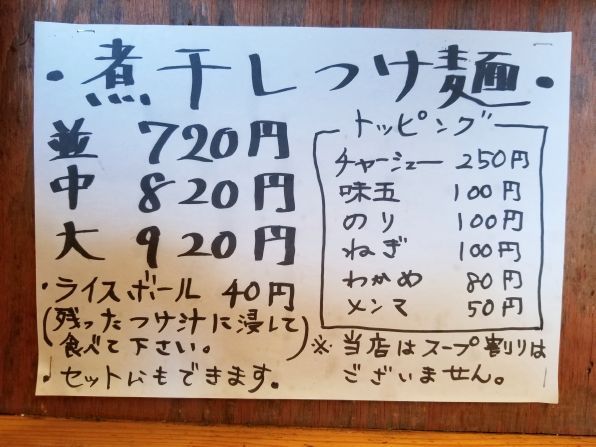 ・煮干しつけ麺・
並 720円
中 820円
大 920円
・ライスボール 40円
(残ったつけ汁に浸して
食べて下さい。)
・セットにもできます。
トッピング
チャーシュー 250円
味玉 100円
のり 100円
ねぎ 100円
わかめ 80円
メンマ 50円
※当店はスープ割りは
ございません。